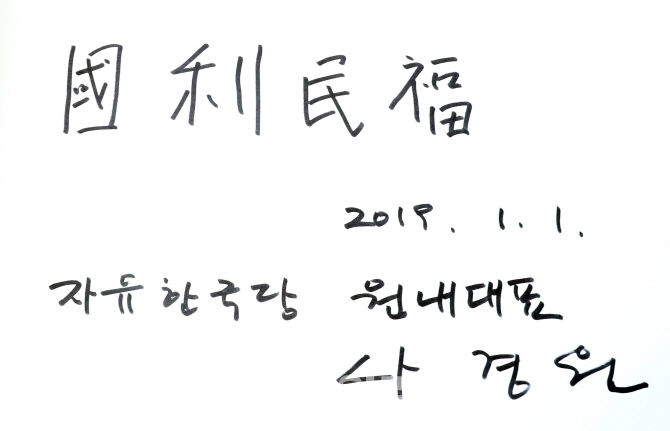 國利民福
2019. 1. 1.
자유한국당 원내대표
나 경 원